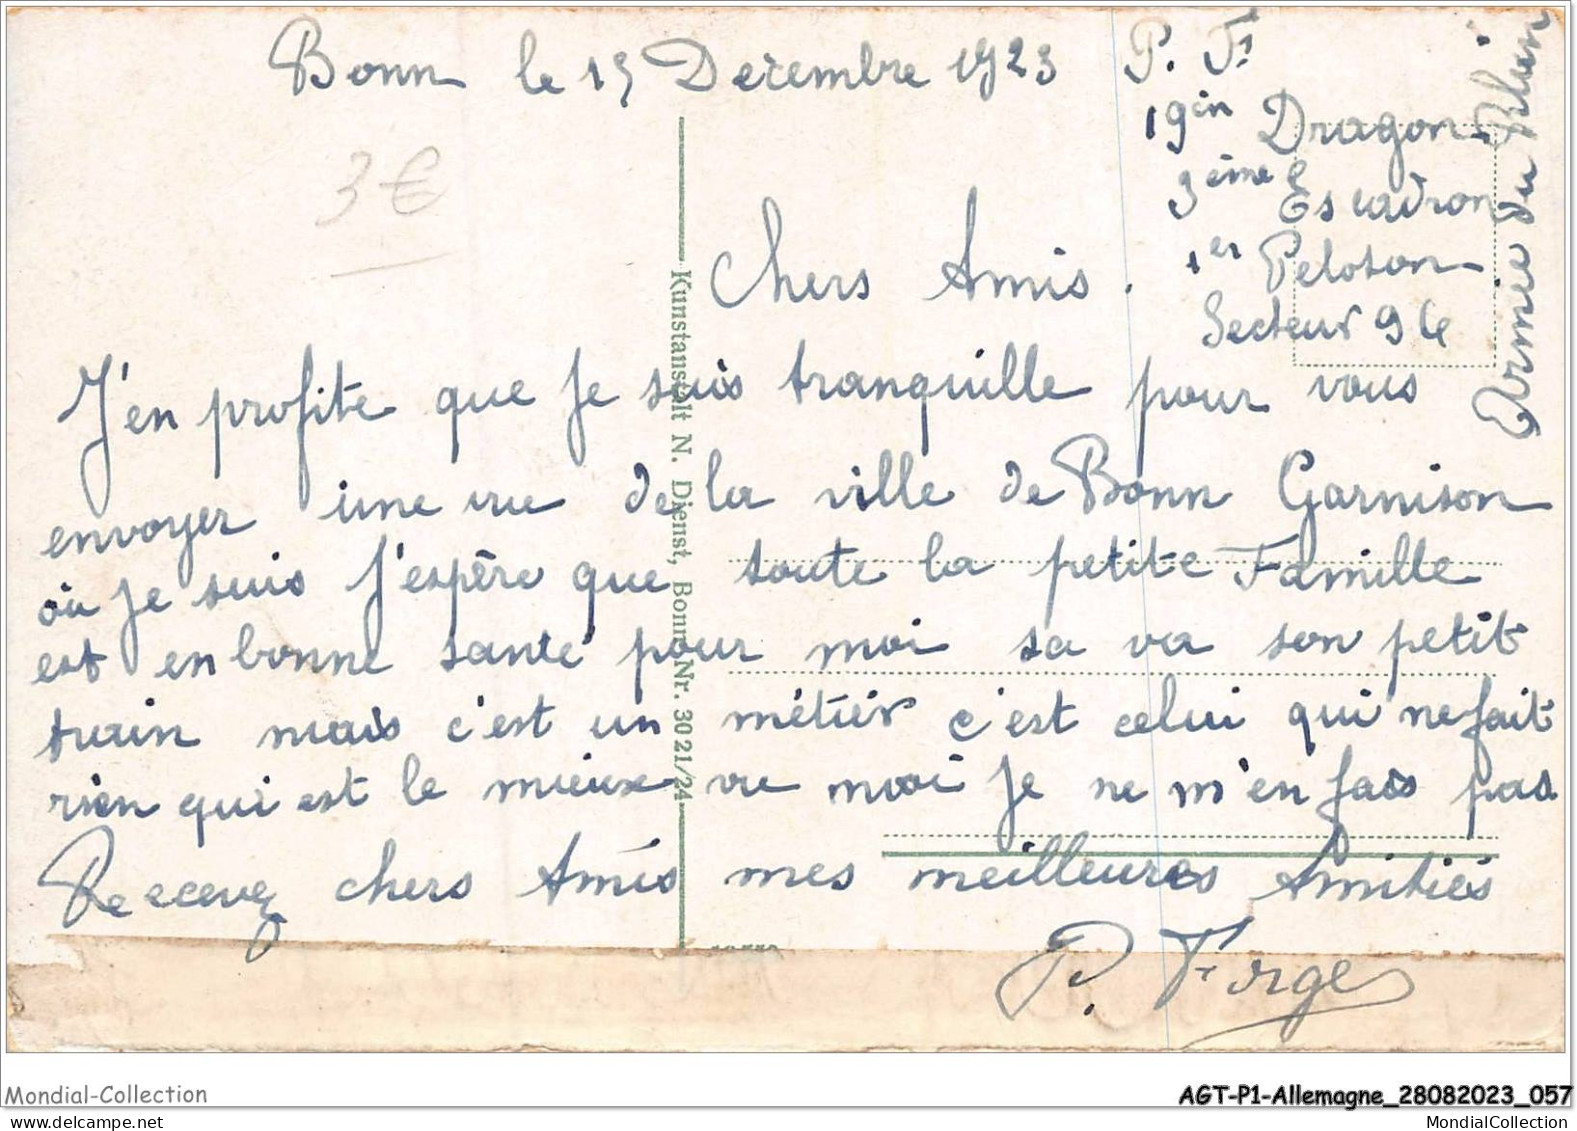 Bonn le 15 Decembre 1923
P. F.
19ein Dragon
3ème Escadron
1er Peloton
Secteur 96
Armée du Rhin
3 €
Chers Amis.
J'en profite que je suis tranquille pour vous
envoyer une vue de la ville de Bonn Garnison
où je suis J'espère que toute la petite Famille
est en bonne santé pour moi sa va son petit
train mais c'est un métier c'est celui qui ne fait
rien qui est le mieux vu moi je ne m'en fais pas
Recevez chers Amis mes meilleures Amitiés
P. Forge
Kunstanstalt N. Dienst, Bonn Nr. 3021/24
Mondial-Collection
AGT-P1-Allemagne_28082023_057
MondialCollection